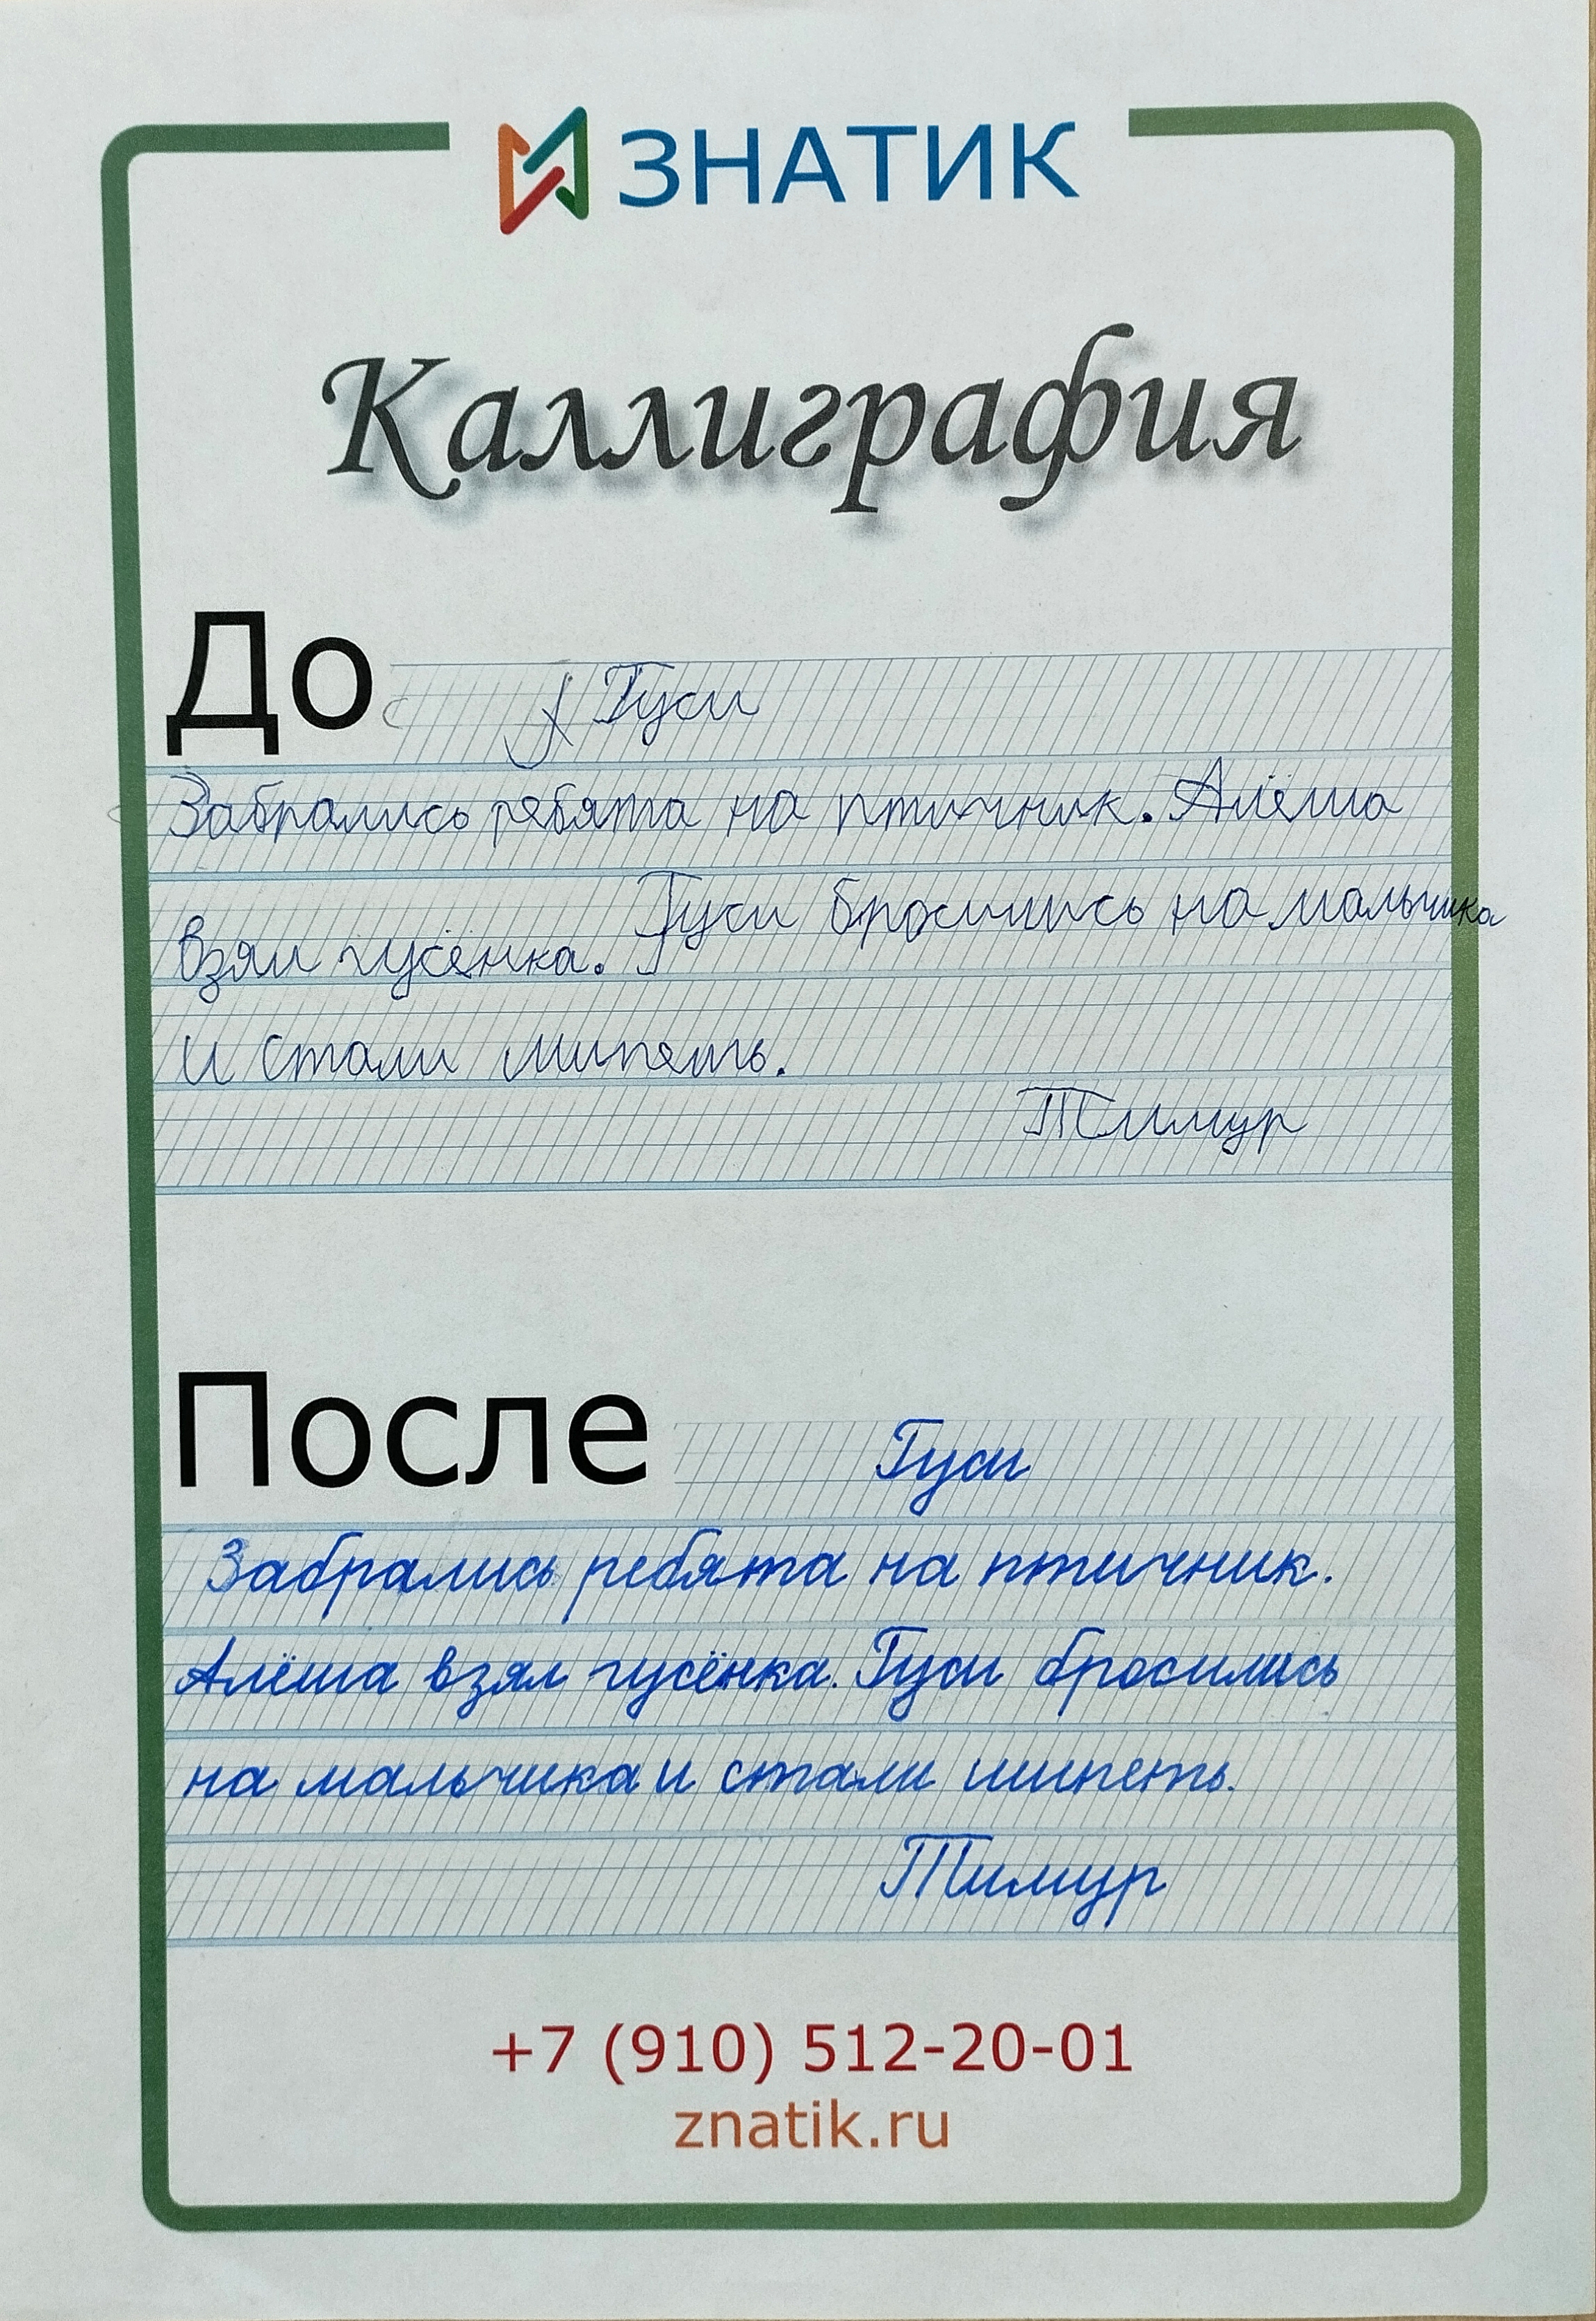 ЗНАТИК
Каллиграфия
До
Гуси
Забрались ребята на птичник. Алёша
взял гусёнка. Гуси бросились на мальчика
и стали шипеть.
Тимур
После
Гуси
Забрались ребята на птичник.
Алёша взял гусёнка. Гуси бросились
на мальчика и стали шипеть.
Тимур
+7 (910) 512-20-01
znatik.ru